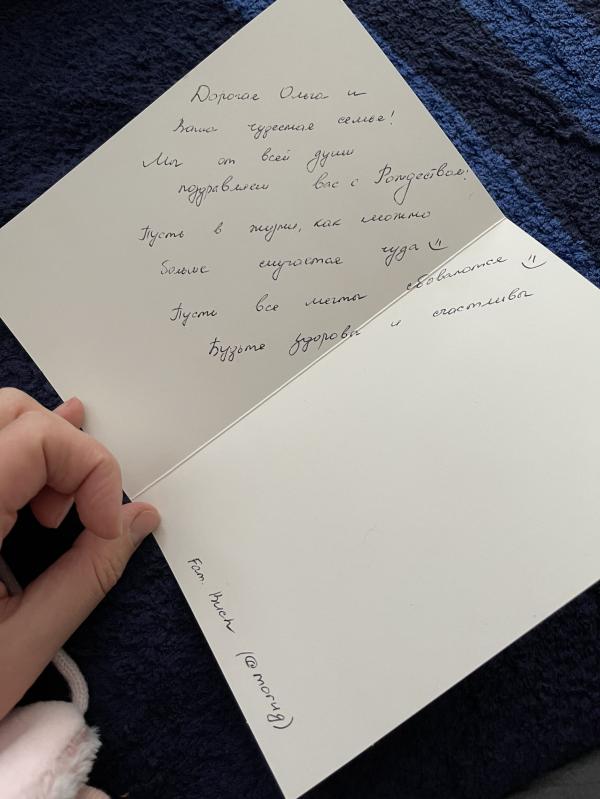 Дорогая Ольга и
Ваша чудесная семье!
Мы от всей души
поздравляем вас с Рождеством!
Пусть в жизни, как можно
больше случается чуда
Пусть все мечты сбоваются
Будьте здоровы и счастливы
Fam. Buch (@morug)